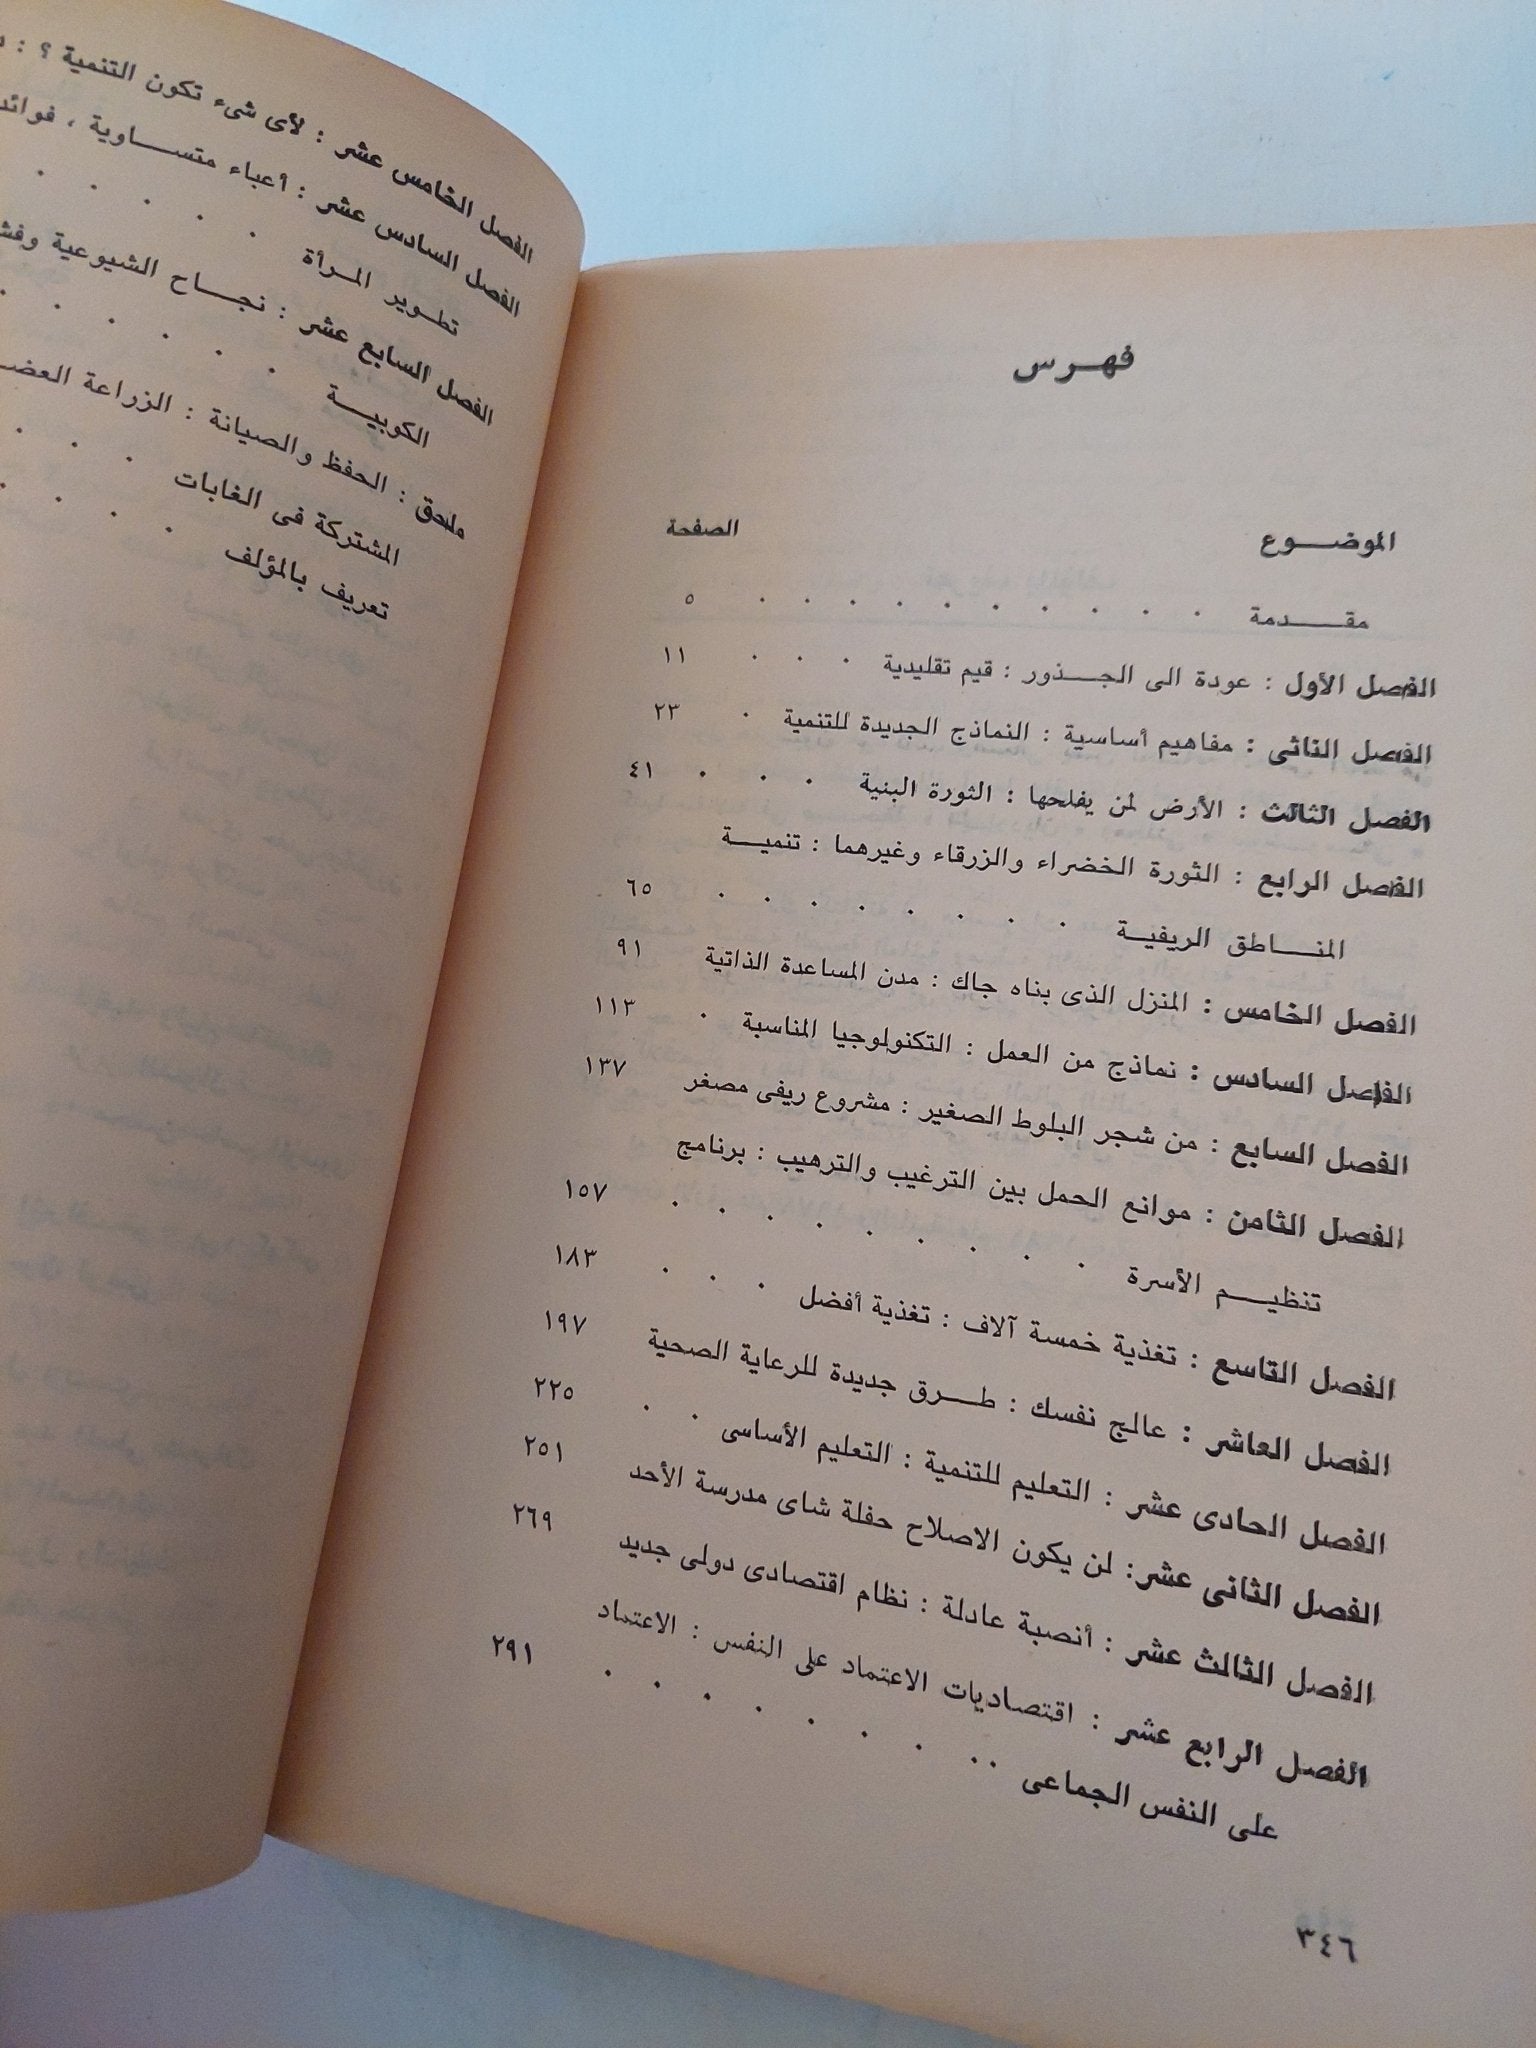 فهرس
الموضوع الصفحة
مقدمة . . . . . . . . . . ٥
الفصل الأول : عودة الى الجذور : قيم تقليدية . . . ١١
الفصل الثانى : مفاهيم أساسية : النماذج الجديدة للتنمية . ٢٣
الفصل الثالث : الأرض لمن يفلحها : الثورة البنية . . . ٤١
الفصل الرابع : الثورة الخضراء والزرقاء وغيرهما : تنمية
المناطق الريفية . . . . . . . . ٦٥
الفصل الخامس : المنزل الذى بناه جاك : مدن المساعدة الذاتية ٩١
الفصل السادس : نماذج من العمل : التكنولوجيا المناسبة . ١١٣
الفصل السابع : من شجر البلوط الصغير : مشروع ريفى مصغر ١٣٧
الفصل الثامن : موانع الحمل بين الترغيب والترهيب : برنامج
تنظيم الأسرة . . . . . . . . . ١٥٧
الفصل التاسع : تغذية خمسة آلاف : تغذية أفضل . . . ١٨٣
الفصل العاشر : عالج نفسك : طرق جديدة للرعاية الصحية ١٩٧
الفصل الحادى عشر : التعليم للتنمية : التعليم الأساسى . . ٢٢٥
الفصل الثانى عشر: لن يكون الاصلاح حفلة شاى مدرسة الأحد ٢٥١
الفصل الثالث عشر : أنصبة عادلة : نظام اقتصادى دولى جديد ٢٦٩
الفصل الرابع عشر : اقتصاديات الاعتماد على النفس : الاعتماد
على النفس الجماعى . . . . . . . . . ٢٩١
٣٤٦
الفصل الخامس عشر : لأى شىء تكون التنمية ؟ :
الفصل السادس عشر : أعباء متساوية ، فوائد
تطوير المرأة . . . . .
الفصل السابع عشر : نجاح الشيوعية
الكوبية . . . . . .
ملحق : الحفظ والصيانة : الزراعة
المشتركة فى الغابات . . .
تعريف بالمؤلف . . . .